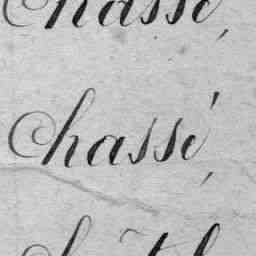 Chassé,
Chassé,